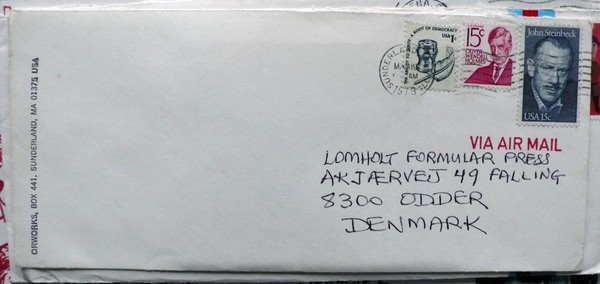 A ROOT OF DEMOCRACY
USA 1c
15¢
OLIVER WENDELL HOLMES
John Steinbeck
USA 15c
SUNDERLAND
AM
VIA AIR MAIL
LOMHOLT FORMULAR PRESS
AKJÆRVEJ 49 FALLING
8300 ODDER
DENMARK
ORWORKS, BOX 441, SUNDERLAND, MA 01375 USA